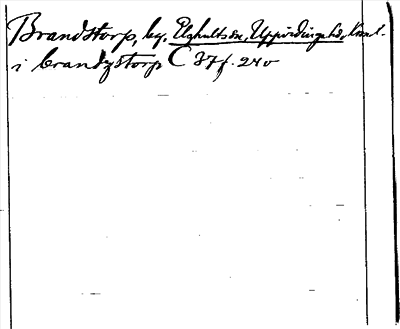 Brandstorp, by. Elghults sn, Uppvidinge hd, Kron. l.
i brandzstorp C 37 f. 240